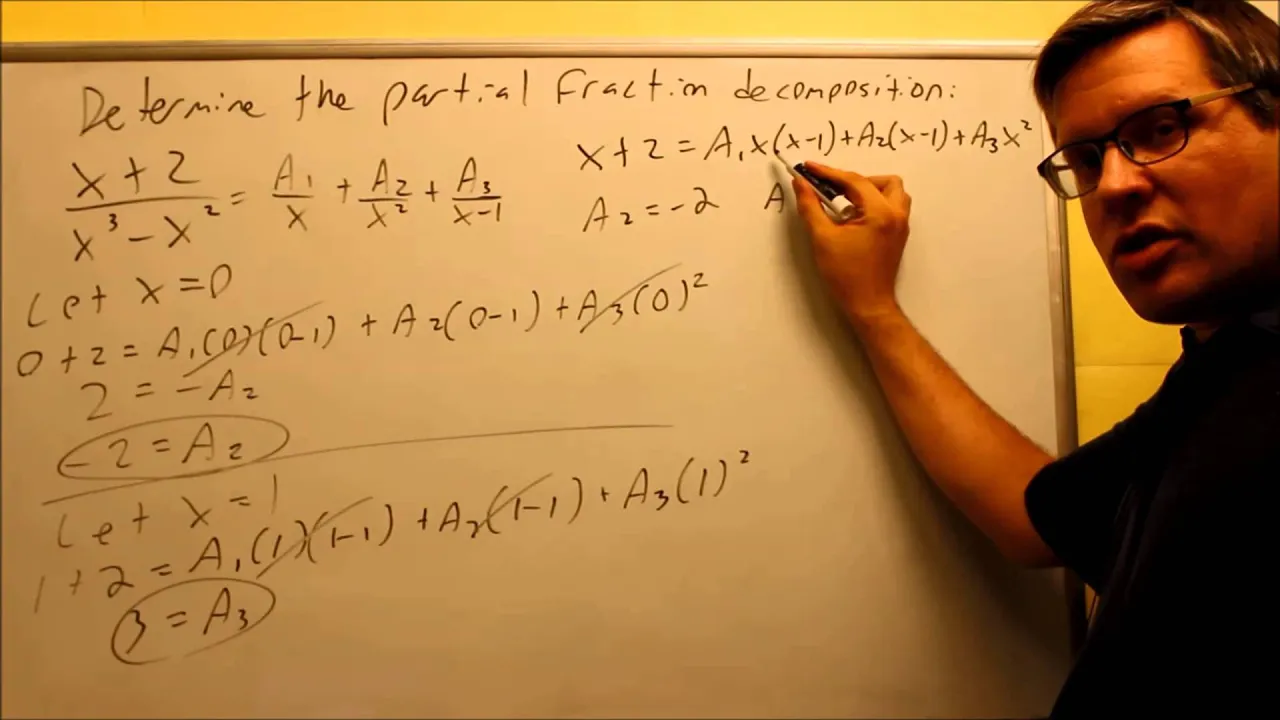 Determine the partial fraction decomposition:
x + 2 / x³ - x² = A₁/x + A₂/x² + A₃/x-1
x + 2 = A₁x(x-1) + A₂(x-1) + A₃x²
A₂ = -2 A
Let x = 0
0 + 2 = A₁(0)(0-1) + A₂(0-1) + A₃(0)²
2 = -A₂
-2 = A₂
Let x = 1
1 + 2 = A₁(1)(1-1) + A₂(1-1) + A₃(1)²
3 = A₃